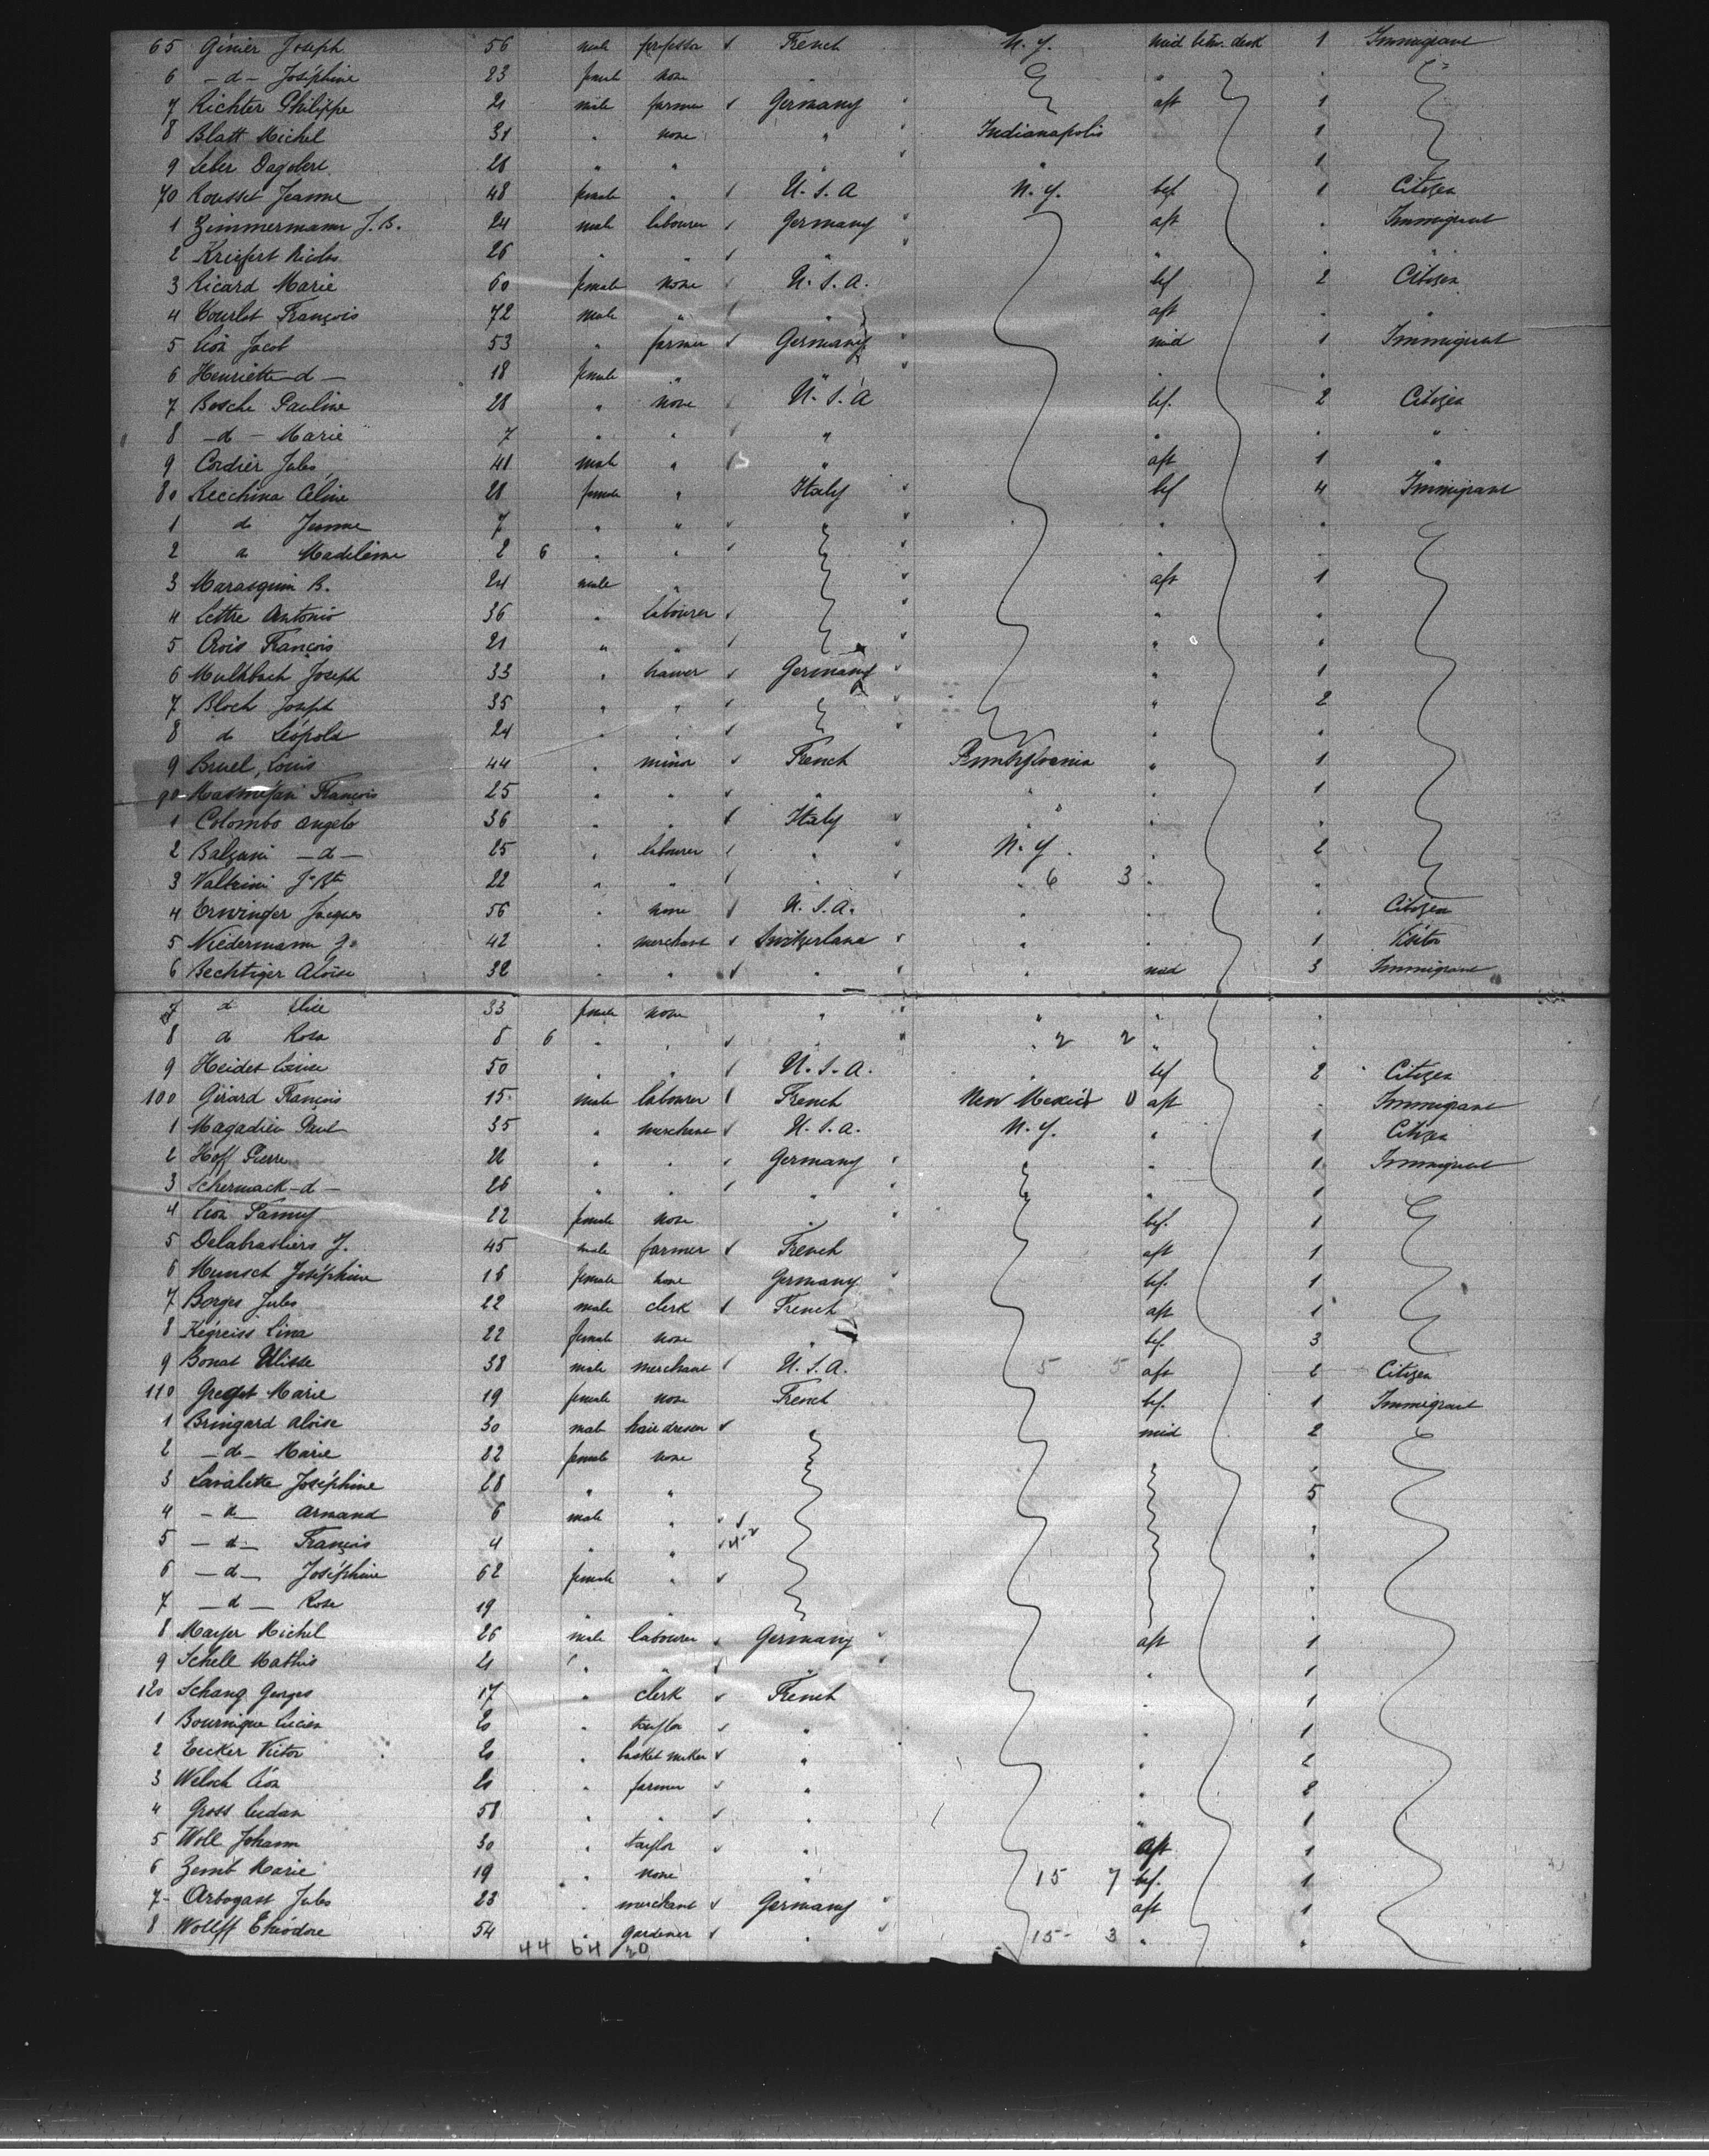 65 Génier Joseph 56 male professor French N. Y. mid betw. deck 1 Immigrant
6 -d- Joséphine 23 female none "
7 Richter Philippe 21 male farmer Germany aft 1
8 Blatt Michel 31 " none " Indianapolis 1
9 Leber 28 " " " " 1
70 Rousset Jeanne 48 female " U. S. A N. Y. bef. 1 Citizen
1 Zimmermann J. B. 24 male labourer Germany aft " Immigrant
2 26 " " " " " "
3 Ricard Marie 60 female none U. S. A. bef 2 Citizen
4 François 72 male " " aft " "
5 Léon Jacob 53 " farmer Germany mid 1 Immigrant
6 Henriette -d- 18 female " " " "
7 Bosche Pauline 28 " none U. S. A bef. 2 Citizen
8 -d- Marie 7 " " " " " "
9 Cordier Jules 41 male " " aft 1 "
80 Recchina Céline 28 female " Italy bef 4 Immigrant
1 do Jeanne 7 " " " "
2 do Madeleine 2 6 " " " "
3 Marasquin B. 24 male " aft 1
4 Lettre Antonio 36 " labourer " "
5 Orois François 21 " " " "
6 Mulhbach Joseph 33 " Germany " 1
7 Bloch Joseph 35 " " " 2
8 do Léopold 24 " " " "
9 Bruel, Louis 44 " minor French Pennsylvania " 1
90 François 25 " " " " " 1
1 Colombo Angelo 36 " " Italy " " "
2 Balzani -d- 25 " labourer " N. Y. " 2
3 Valtrini J. Bte 22 " " " " 6 3 " "
4 Erwinger Jacques 56 " none U. S. A. " " " Citizen
5 Niedermann J. 42 " merchant Switzerland " " 1 Visitor
6 Bechtiger Aloïse 32 " " " " mid 3 Immigrant
7 do Elise 33 female none " " " "
8 do Rosa 8 6 " " " " 2 2 " "
9 Heidet Louise 50 " " U. S. A. " bef 2 Citizen
100 Girard François 15 male labourer French New Mexico 0 aft " Immigrant
1 Magadieu Paul 35 " merchant U. S. a. N. Y. " 1 Citizen
2 Hoff Pierre 22 " " Germany " 1 Immigrant
3 Schermack -d- 26 " " " " 1
4 Léon Fanny 22 female none " bef. 1
5 Delabrasliers J. 45 male farmer French aft 1
6 Munsch Joséphine 16 female none Germany bef. 1
7 Borges Jules 22 male clerk French aft 1
8 Kégreiss Lina 22 female none " bef. 3
9 Bonat Ulisse 38 male merchant U. S. A. 5 5 aft 2 Citizen
110 Marie 19 female none French bef. 1 Immigrant
1 Bringard Aloïse 30 male hair dresser mid 2
2 -do- Marie 22 female none "
3 Lavalette Joséphine 28 " " 5
4 -d- Armand 6 male " "
5 -d- François 4 " " "
6 -d- Joséphine 62 female " "
7 -d- Rose 19 " " "
8 Mayer Michel 26 male labourer Germany aft 1
9 Schell Mathis 21 " " " " 1
120 Schang Georges 17 " clerk French " 1
1 Bournique Lucien " taylor " " 1
2 Eucker Victor " basket maker " " 2
3 Welsch Léon " farmer " " 2
4 Gross 58 " " " " 1
5 Woll Johann 30 " taylor " aft 1
6 Zemb Marie 19 " none " 15 7 bef. 1
7 Arbogast Jules 23 " merchant Germany aft 1
8 Wolff Théodore 54 " gardener " 15 3 " "
44 64 20